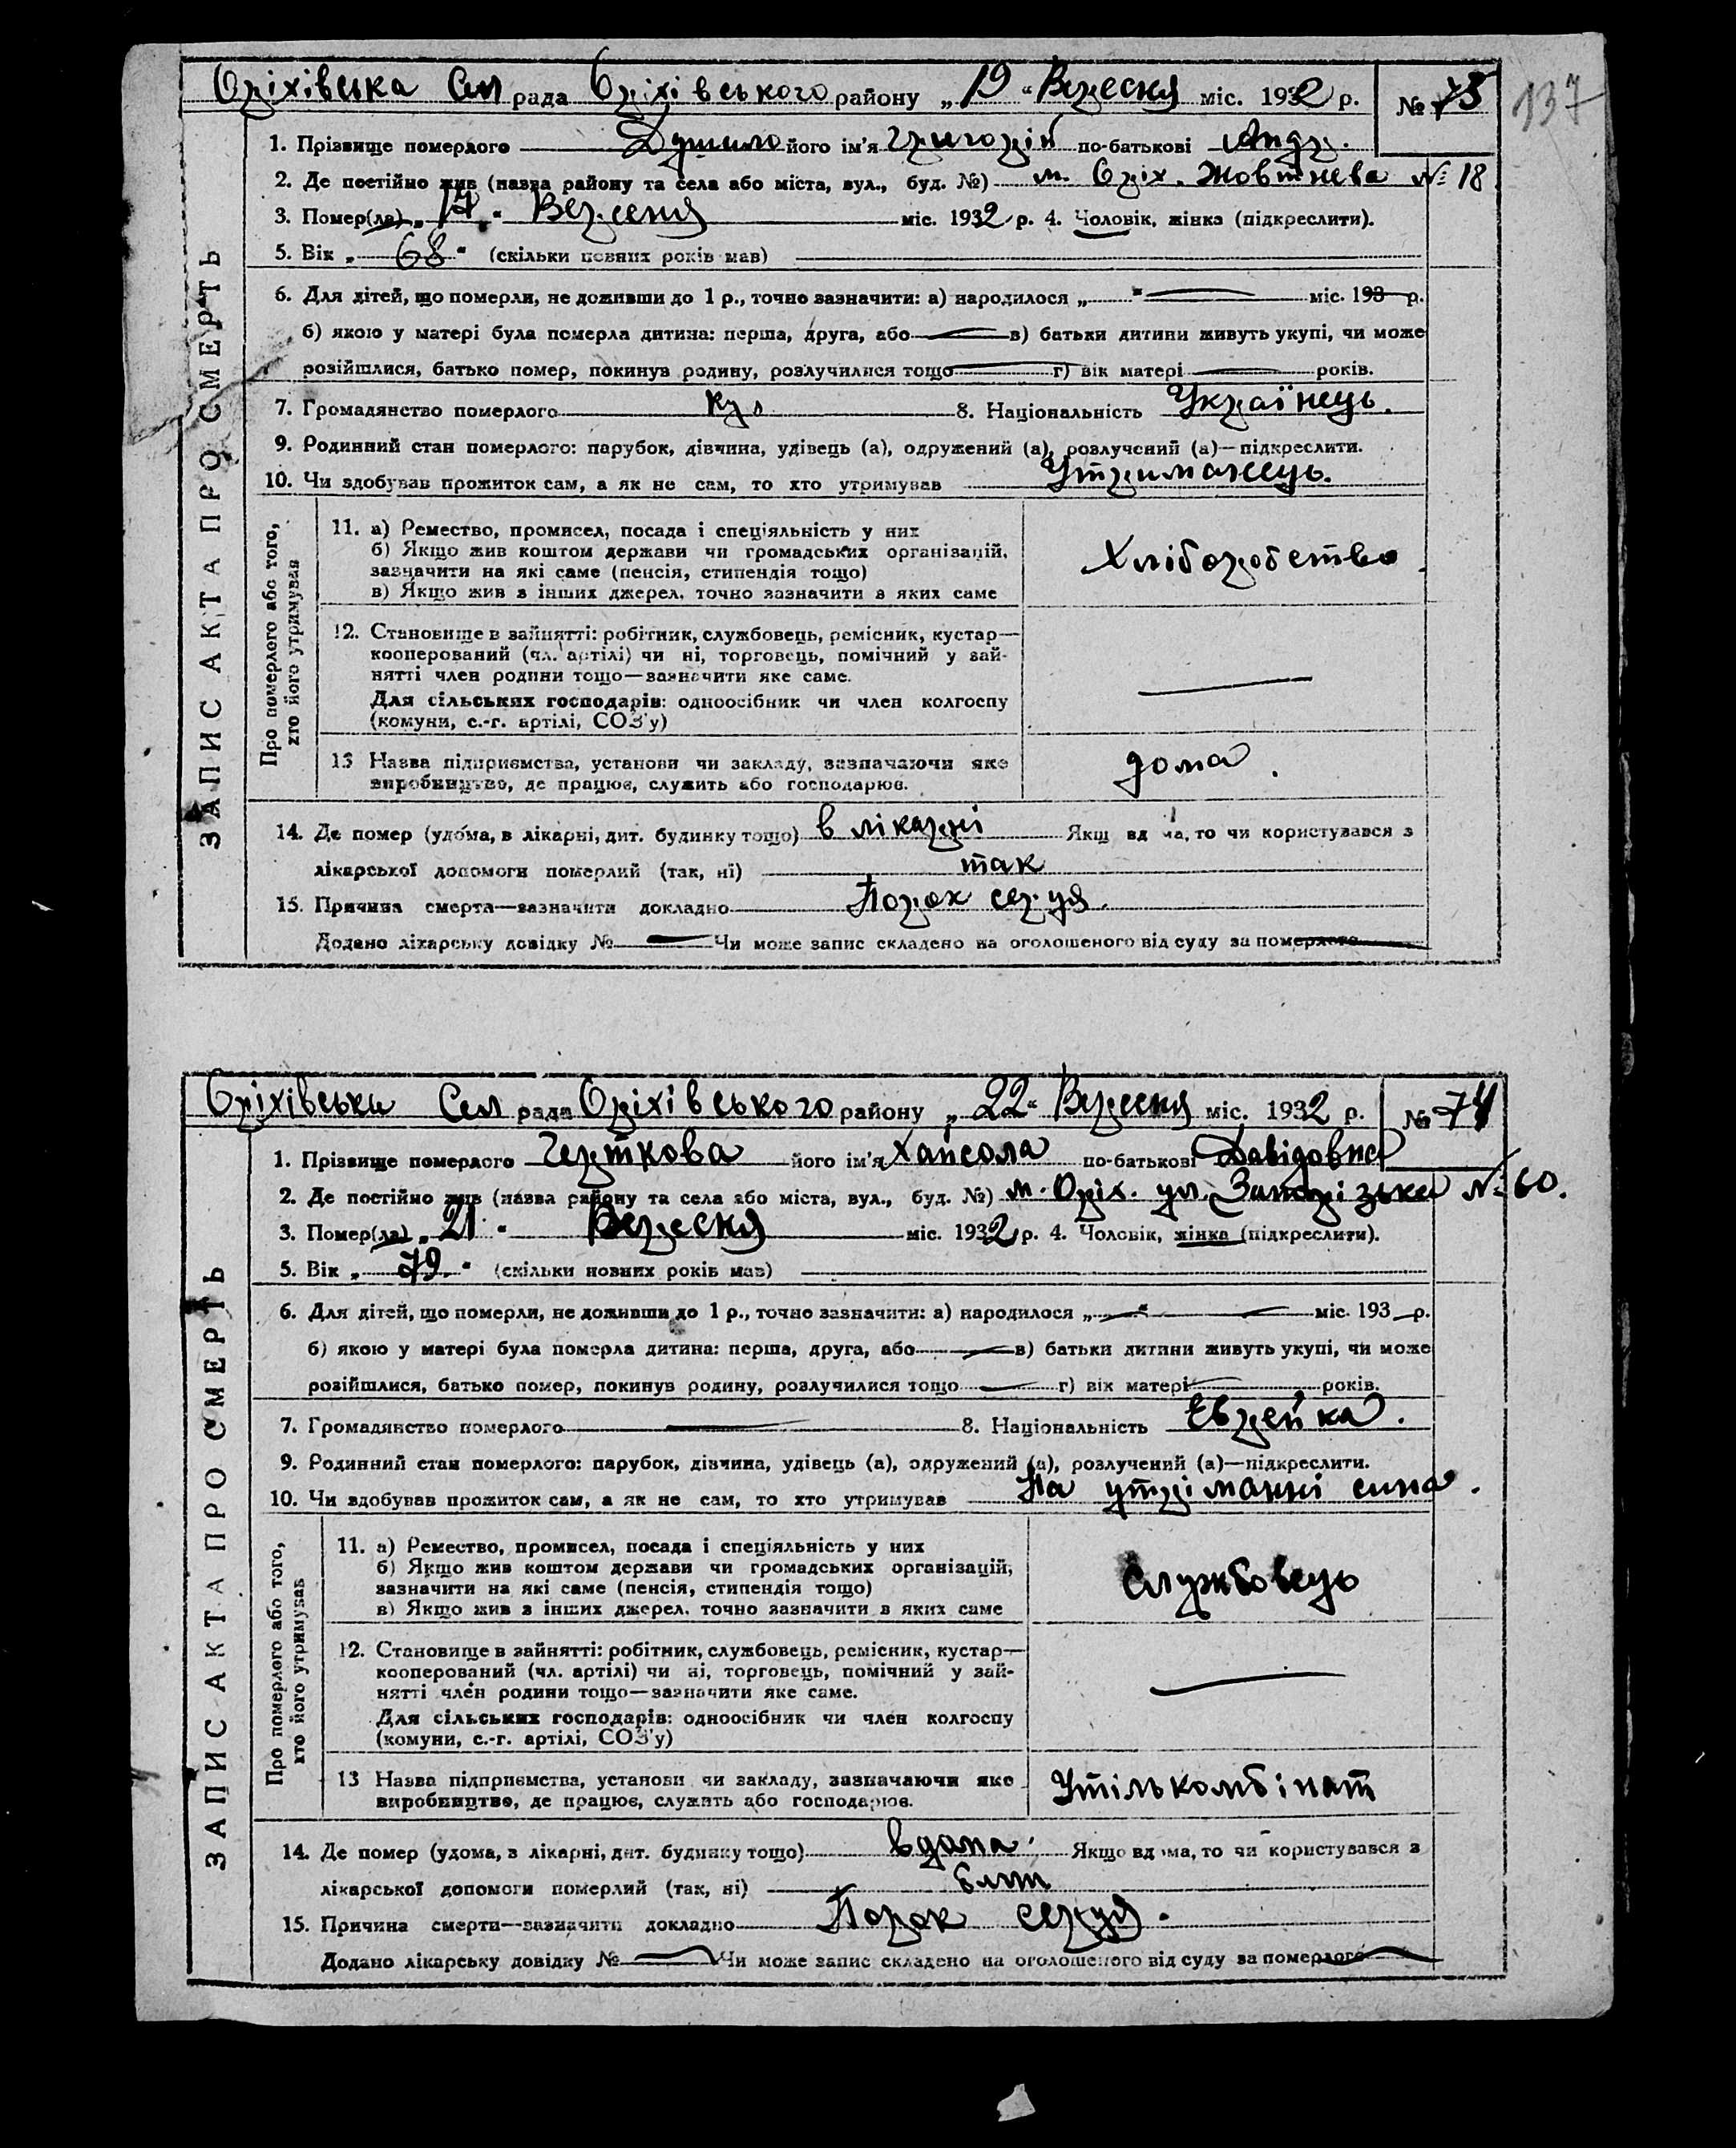 137
Оріхівська Сел рада Оріхівського району „19“ Вересня міс. 1932 р. № 75
1. Прізвище померлого його ім'я Григорій по-батькові Андр.
2. Де постійно жив (назва району та села або міста, вул., буд. №) м. Оріх. Жовтнева № 18
3. Помер(ла) „17“ Вересня міс. 1932 р. 4. Чоловік, жінка (підкреслити).
5. Вік „68“ (скільки повних років мав)
6. Для дітей, що померли, не доживши до 1 р., точно зазначити: а) народилося „ “ міс. 193 р.
б) якою у матері була померла дитина: перша, друга, або в) батьки дитини живуть укупі, чи може
розійшлися, батько помер, покинув родину, розлучилися тощо г) вік матері років.
7. Громадянство померлого 8. Національність Українець.
9. Родинний стан померлого: парубок, дівчина, удівець (а), одружений (а), розлучений (а)—підкреслити.
10. Чи здобував прожиток сам, а як не сам, то хто утримував Утриманець.
ЗАПИС АКТА ПРО СМЕРТЬ
Про померлого або того,
хто його утримував
11. а) Ремество, промисел, посада і спеціяльність у них
б) Якщо жив коштом держави чи громадських організацій,
зазначити на які саме (пенсія, стипендія тощо)
в) Якщо жив з інших джерел, точно зазначити з яких саме
Хліборобство
12. Становище в зайнятті: робітник, службовець, ремісник, кустар—
кооперований (чл. артілі) чи ні, торговець, помічний у зай-
нятті член родини тощо—зазначити яке саме.
Для сільських господарів: одноосібник чи член колгоспу
(комуни, с.-г. артілі, СОЗ'у)
13 Назва підприємства, установи чи закладу, зазначаючи яке
виробництво, де працює, служить або господарює.
дома.
14. Де помер (удома, в лікарні, дит. будинку тощо) в лікарні Якщ вд ма, то чи користувався з
лікарської допомоги померлий (так, ні) так
15. Причина смерти—зазначити докладно Порок серця.
Додано лікарську довідку № Чи може запис складено на оголошеного від суду за померлого
Оріхівська Сел рада Оріхівського району „22“ Вересня міс. 1932 р. № 74
1. Прізвище померлого Черткова його ім'я по-батькові Давідовна
2. Де постійно жив (назва району та села або міста, вул., буд. №) м. Оріх. ул. Запорізька № 60.
3. Помер(ла) „21“ Вересня міс. 1932 р. 4. Чоловік, жінка (підкреслити).
5. Вік „79“ (скільки повних років мав)
6. Для дітей, що померли, не доживши до 1 р., точно зазначити: а) народилося „ “ міс. 193 р.
б) якою у матері була померла дитина: перша, друга, або в) батьки дитини живуть укупі, чи може
розійшлися, батько помер, покинув родину, розлучилися тощо г) вік матері років.
7. Громадянство померлого 8. Національність Еврейка.
9. Родинний стан померлого: парубок, дівчина, удівець (а), одружений (а), розлучений (а)—підкреслити.
10. Чи здобував прожиток сам, а як не сам, то хто утримував На утріманні сина.
ЗАПИС АКТА ПРО СМЕРТЬ
Про померлого або того,
хто його утримував
11. а) Ремество, промисел, посада і спеціяльність у них
б) Якщо жив коштом держави чи громадських організацій,
зазначити на які саме (пенсія, стипендія тощо)
в) Якщо жив з інших джерел, точно зазначити з яких саме
Службовець
12. Становище в зайнятті: робітник, службовець, ремісник, кустар—
кооперований (чл. артілі) чи ні, торговець, помічний у зай-
нятті член родини тощо—зазначити яке саме.
Для сільських господарів: одноосібник чи член колгоспу
(комуни, с.-г. артілі, СОЗ'у)
13 Назва підприємства, установи чи закладу, зазначаючи яке
виробництво, де працює, служить або господарює.
Утількомбінат
14. Де помер (удома, в лікарні, дит. будинку тощо) вдома. Якщо вд ма, то чи користувався з
лікарської допомоги померлий (так, ні)
15. Причина смерти—зазначити докладно Порок серця.
Додано лікарську довідку № Чи може запис складено на оголошеного від суду за померлого